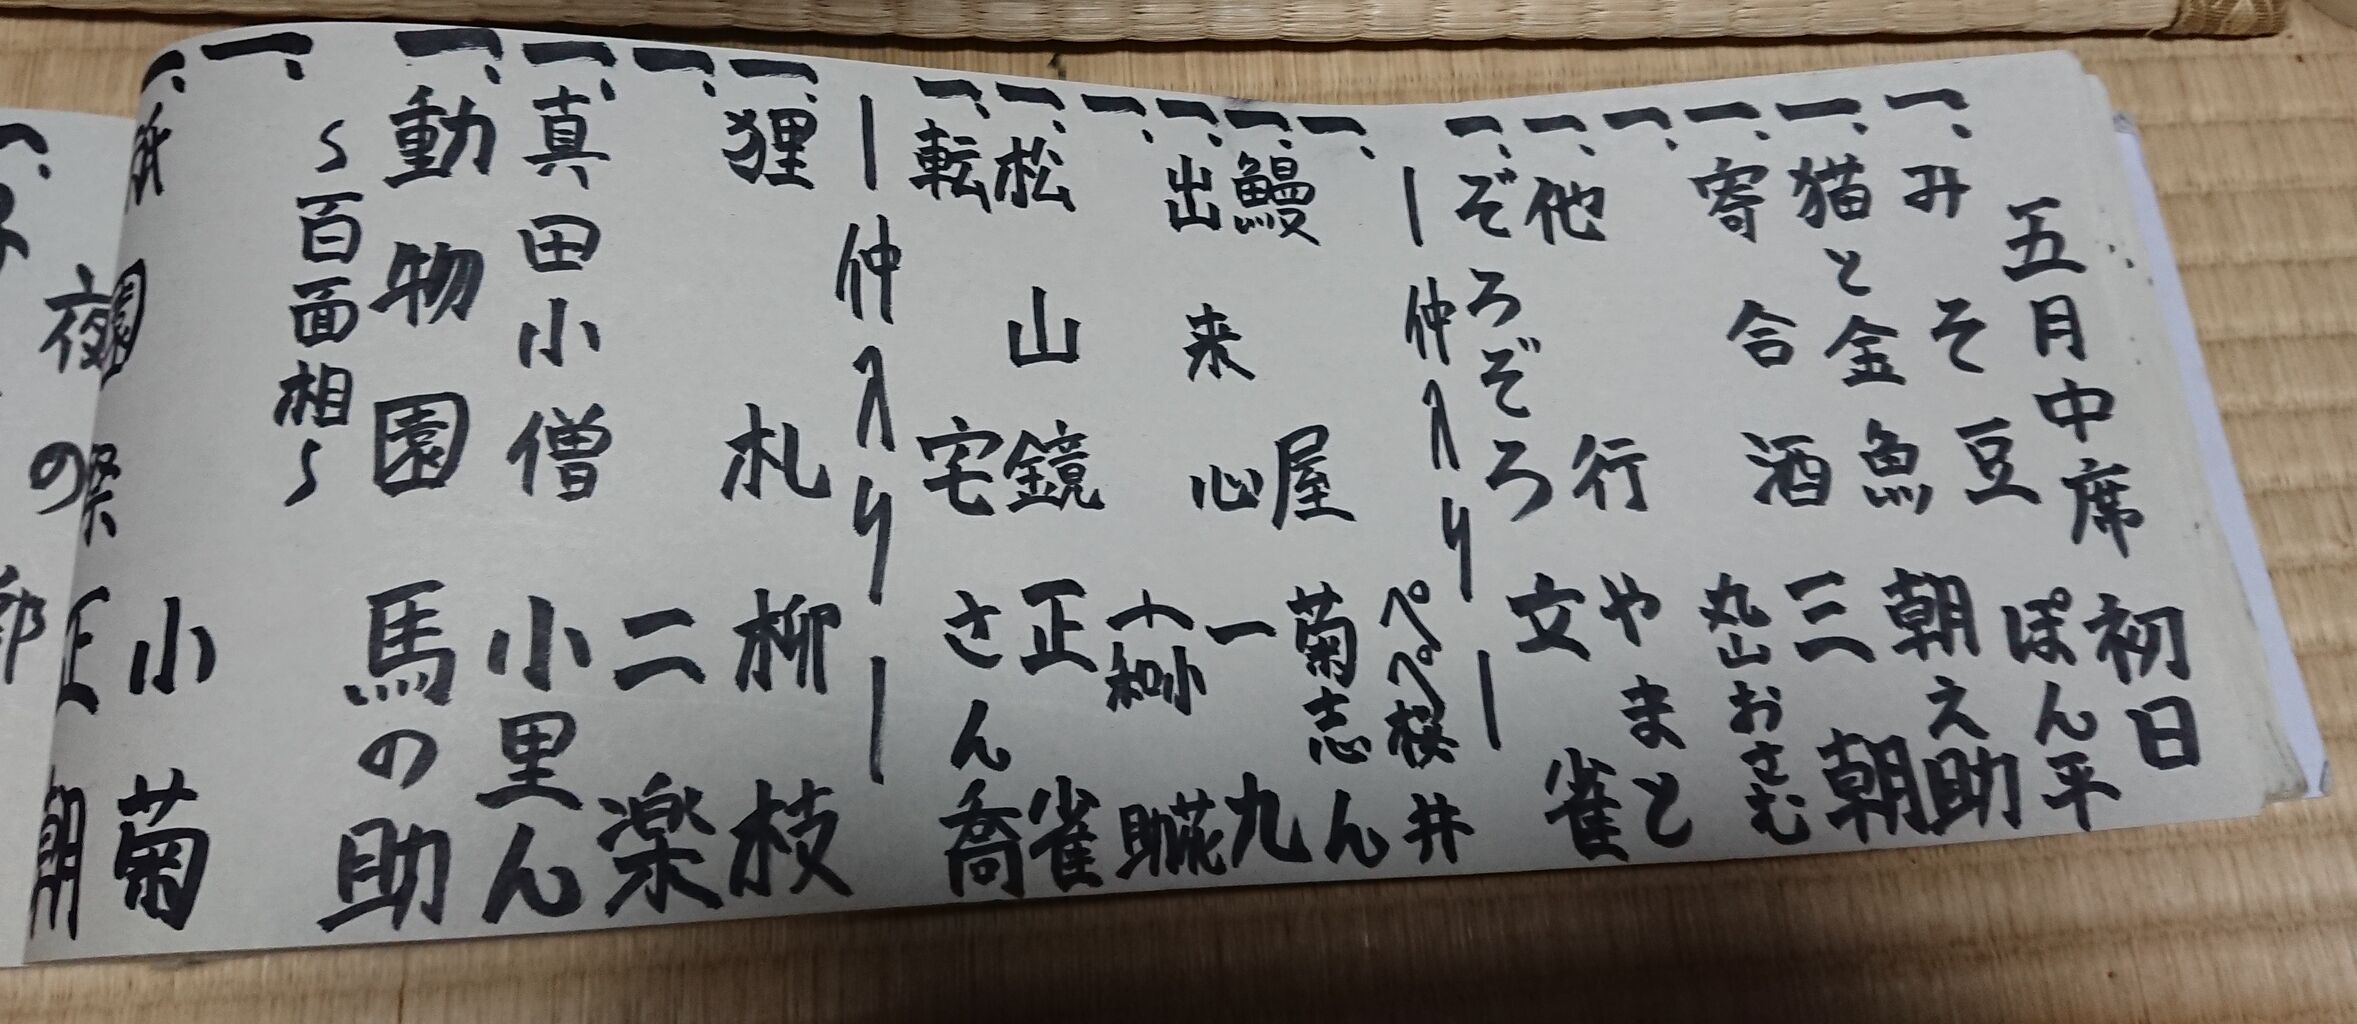 五月中席 初日
一、みそ豆 ぽん平
一、猫と金魚 朝之助
一、寄合酒 三朝
一、 丸山おさむ
一、他行 やまと
一、ぞろぞろ 文雀
｜仲入り｜
一、 ペペ桜井
一、鰻屋 菊志ん
一、出来心 一九
一、 和助 小花
一、松山鏡 正雀
一、転宅 さん喬
｜仲入り｜
一、狸札 柳枝
一、 二楽
一、真田小僧 小里ん
一、動物園 馬の助
〜百面相〜
一、 小菊
一、 園祭 正朝
夜の
一、